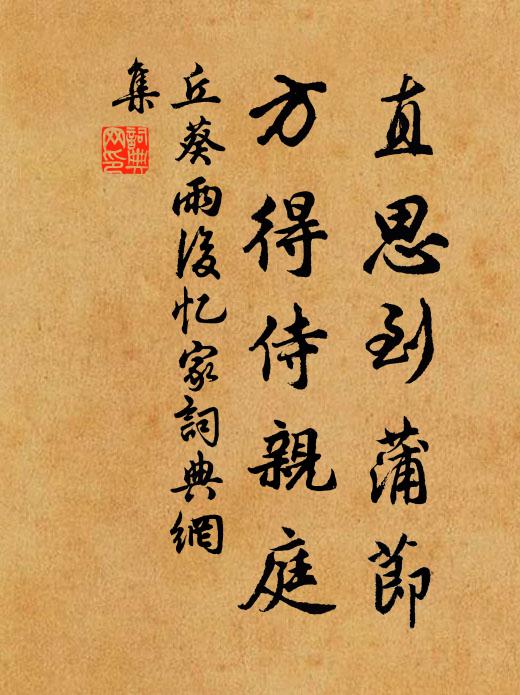 直思到蒲節
方得侍親庭
丘葵雨後忆家詞典網
集
詞典
网印